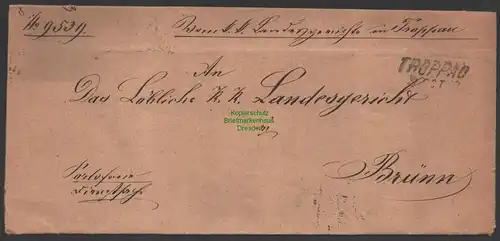 No 9539.
Vom k. k. Landesgerichte in Troppau
TROPPAU
An
Das Löbliche K. K. Landesgericht
Kopierschutz
Briefmarkenhaus
Dresden
Brünn
Portofreie
Dienstsache